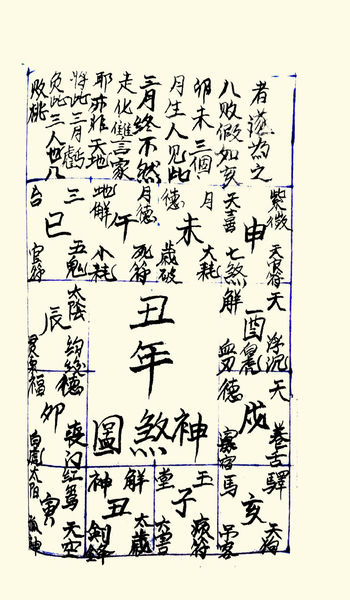 者為之
八敗假如亥
卯未三個
月生人見此
三月終不然
走化雖言家
耶亦非天地
將此三月虧
免此三人也几
敗桃
紫微
天喜
申
七煞
月德
未
大耗
歲破
月德
地解
午
死符
小耗
三台
巳
五鬼
官符
丑年
神煞圖
天解
酉
浮沉
血刃
天德
戌
卷舌
寡宿
驛馬
亥
天狗
吊客
玉堂
子
病符
六害
解神
丑
太歲
劍鋒
紅鸞
寅
天空
太陽
喪門
卯
白虎
福德
太陰
辰